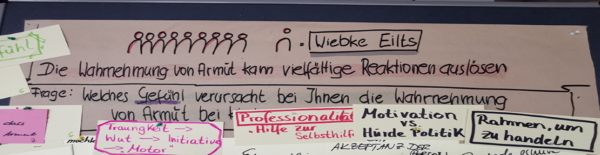 Wiebke Eilts
Die Wahrnehmung von Armut kann vielfältige Reaktionen auslösen
Frage: Welches Gefühl verursacht bei Ihnen die Wahrnehmung
von Armut bei
Traurigkeit →
Wut → Initiative
→ Motor
Professionalität
- Hilfe zur
Selbsthilfe
Motivation
vs.
Hürde Politik
AKZEPTANZ DER
Rahmen, um
zu handeln